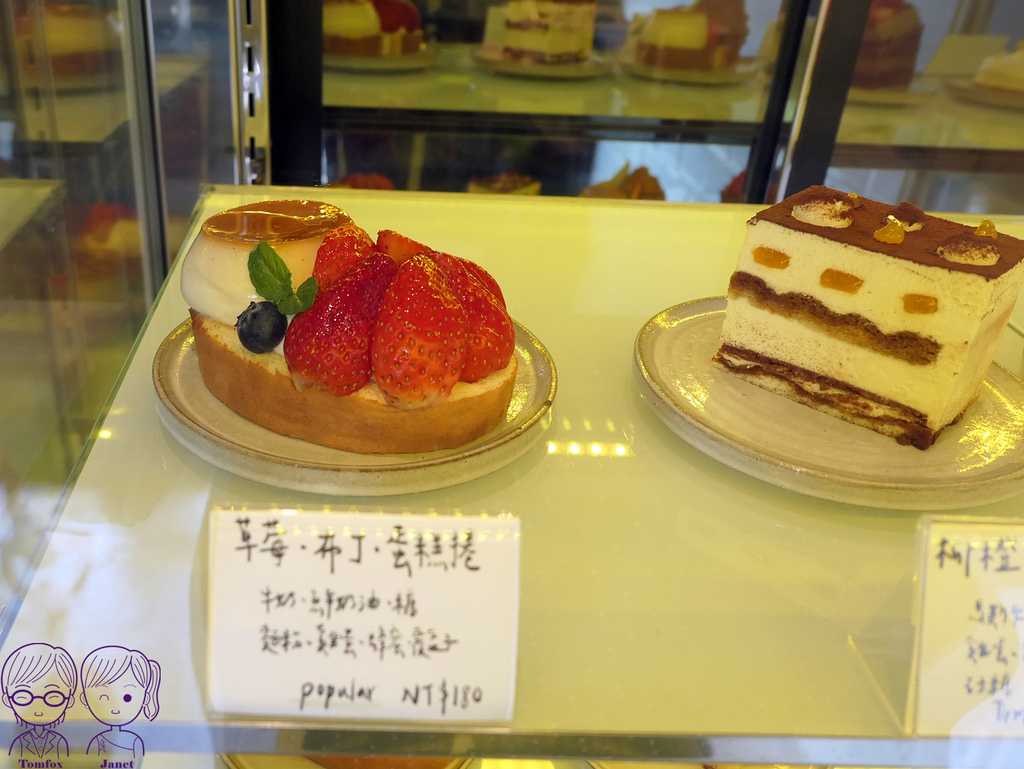 草莓・布丁・蛋糕捲
牛奶・鮮奶油・糖
麵粉・雞蛋・蜂蜜
popular NT$180
柳橙
Tomfox Janet